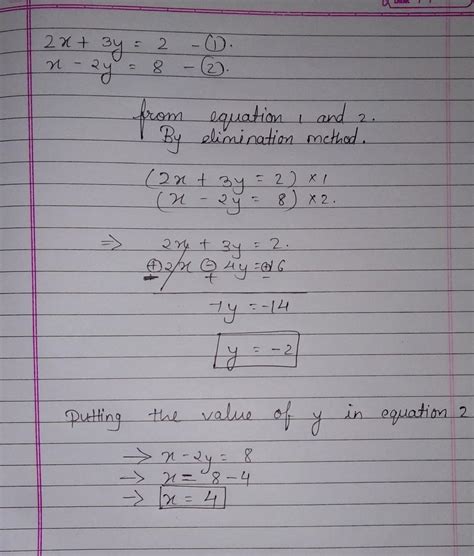 2x + 3y = 2 - ①.
x - 2y = 8 - ②.
from equation 1 and 2.
By elimination method.
(2x + 3y = 2) × 1
(x - 2y = 8) × 2.
⇒ 2x + 3y = 2.
⊕2x ⊖ 4y = ⊕16
- + -
7y = -14
y = -2
Putting the value of y in equation 2
→ x - 2y = 8
→ x = 8 - 4
→ x = 4